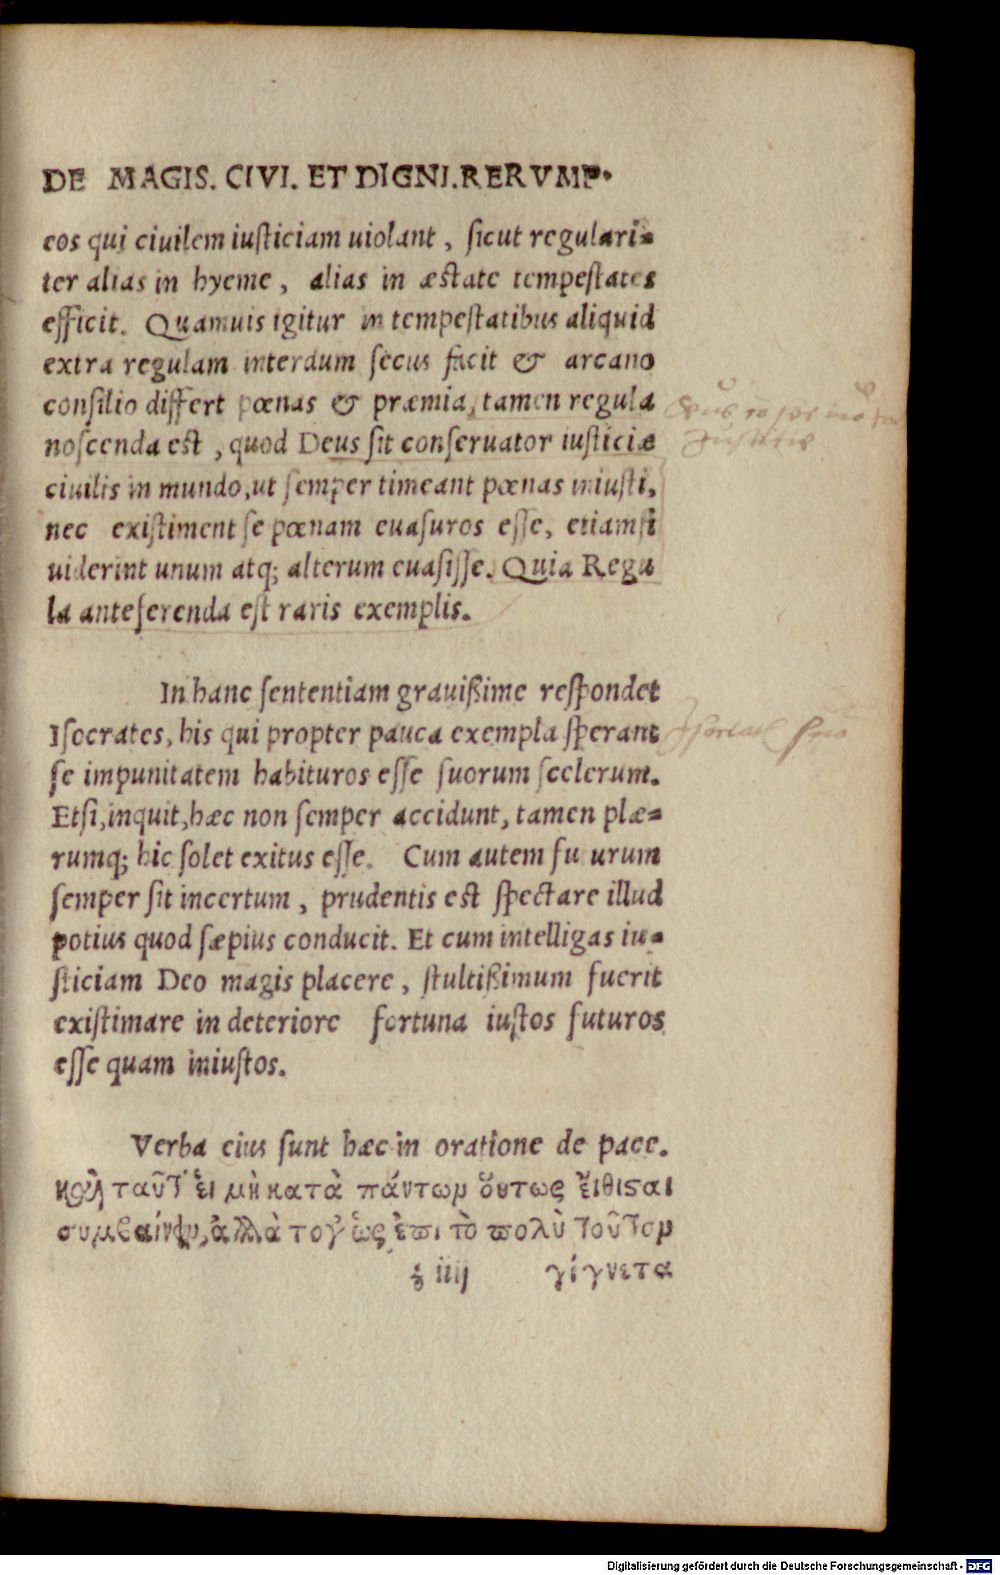 DE MAGIS. CIVI. ET DIGNI. RERVMP.
eos qui ciuilem iusticiam uiolant, sicut regulari=
ter alias in hyeme, alias in æstate tempestates
efficit. Quamuis igitur in tempestatibus aliquid
extra regulam interdum secus facit & arcano
consilio differt pœnas & præmia, tamen regula
noscenda est, quod Deus sit conseruator iusticiæ
ciuilis in mundo, ut semper timeant pœnas iniusti,
nec existiment se pœnam euasuros esse, etiamsi
uiderint unum atq; alterum euasisse. Quia Regu
la anteferenda est raris exemplis.
In hanc sententiam grauißime respondet
Isocrates, his qui propter pauca exempla sperant
se impunitatem habituros esse suorum scelerum.
Etsi, inquit, hæc non semper accidunt, tamen plæ=
rumq; hic solet exitus esse. Cum autem fu urum
semper sit incertum, prudentis est spectare illud
potius quod sæpius conducit. Et cum intelligas iu=
sticiam Deo magis placere, stultißimum fuerit
existimare in deteriore fortuna iustos futuros
esse quam iniustos.
Verba eius sunt hæc in oratione de pace.
καὶ ταῦτ' ἐι μὴ κατὰ πάντωμ ὅυτως ἔιθισαι
συμβαίνειν, ἀλλὰ τογ ὡς ἐπι τὸ πολὺ τοῦτομ
iiij γίγνετα